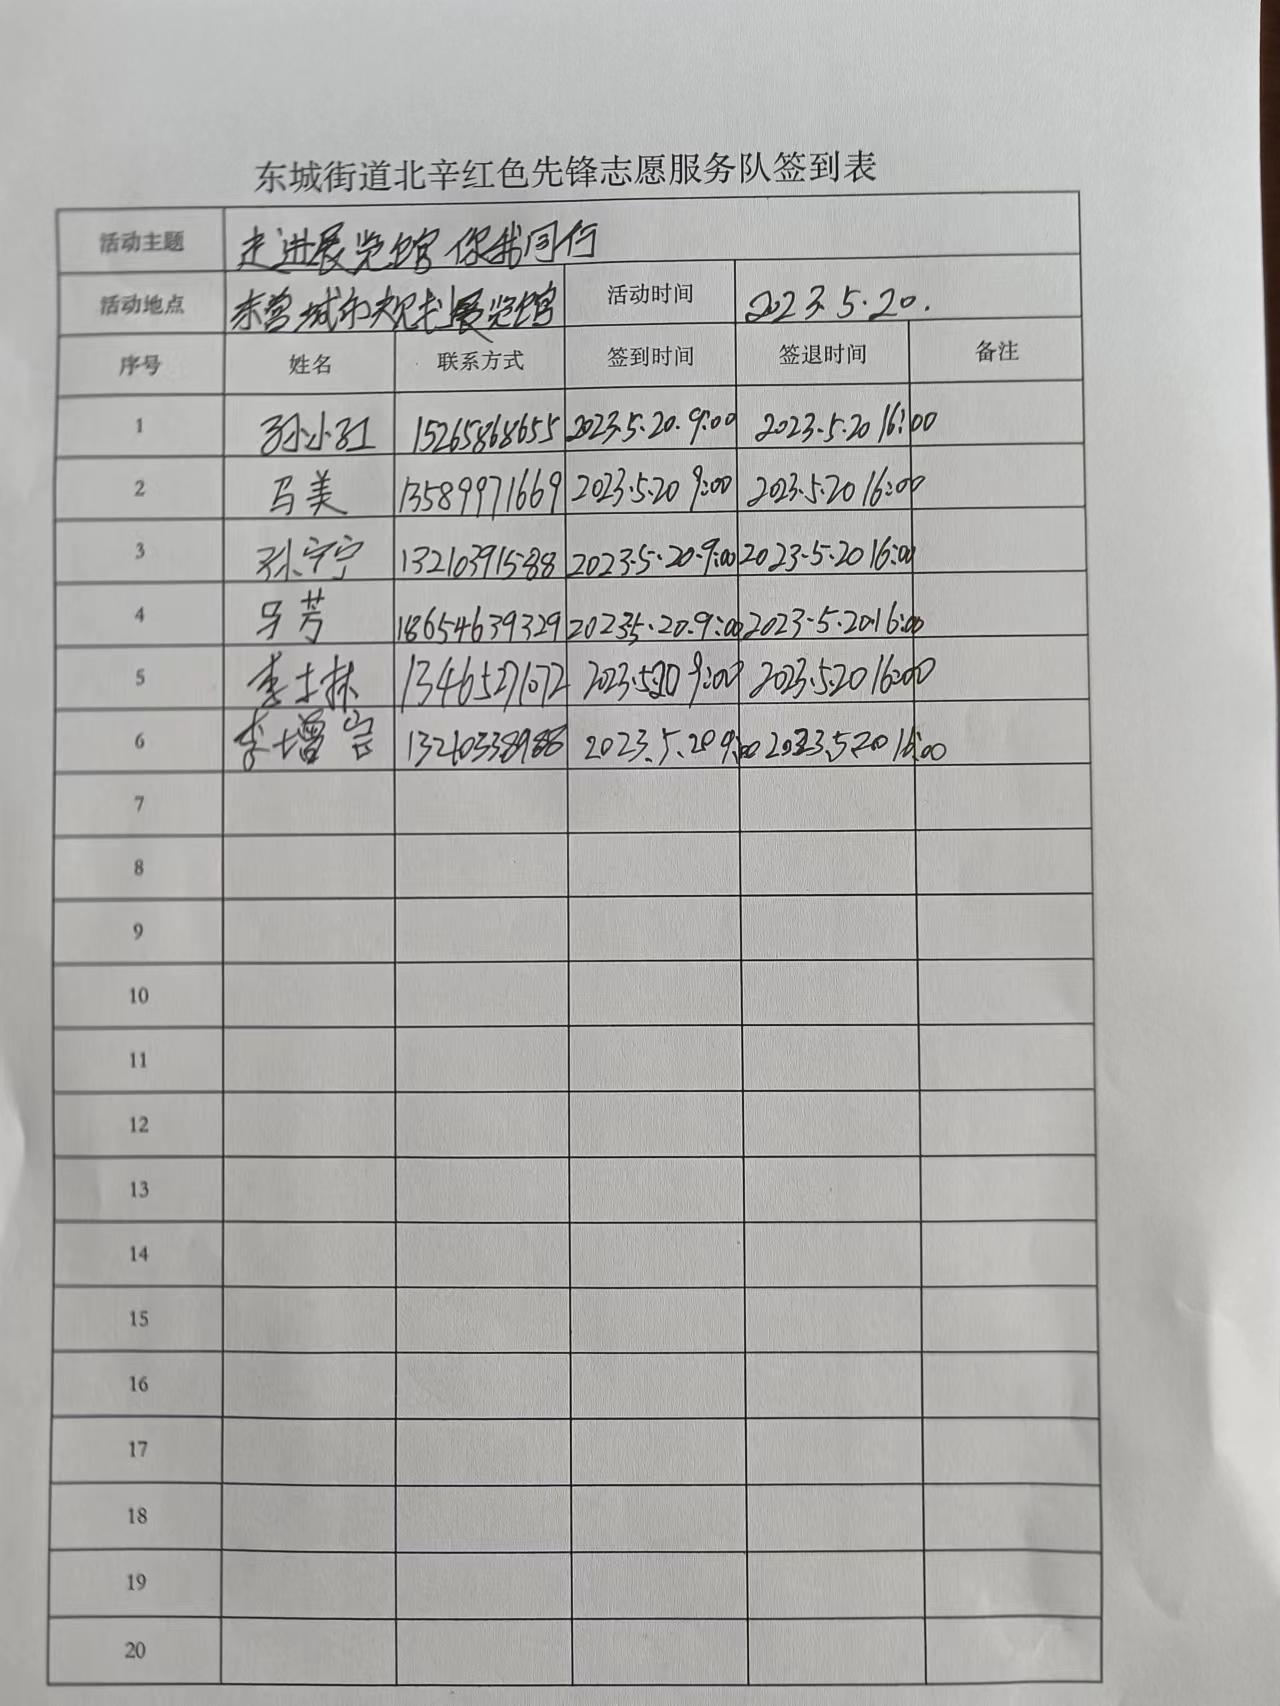 东城街道北辛红色先锋志愿服务队签到表
活动主题 走进展览馆 你我同行
活动地点 东营城市规划展览馆 活动时间 2023.5.20.
序号 姓名 联系方式 签到时间 签退时间 备注
1 孙小红 15265868655 2023.5.20.9:00 2023.5.20 16:00
2 马美 13589971669 2023.5.20 9:00 2023.5.20 16:00
3 孙宁宁 13210391588 2023.5.20.9:00 2023.5.20 16:00
4 马芳 18654639329 20235.20.9:00 2023.5.20.16:00
5 李士林 13465271072 2023.5.20 9:00 2023.5.20 16:00
6 李增 13210338988 2023.5.20 9:00 2023.5.20 16:00
7
8
9
10
11
12
13
14
15
16
17
18
19
20